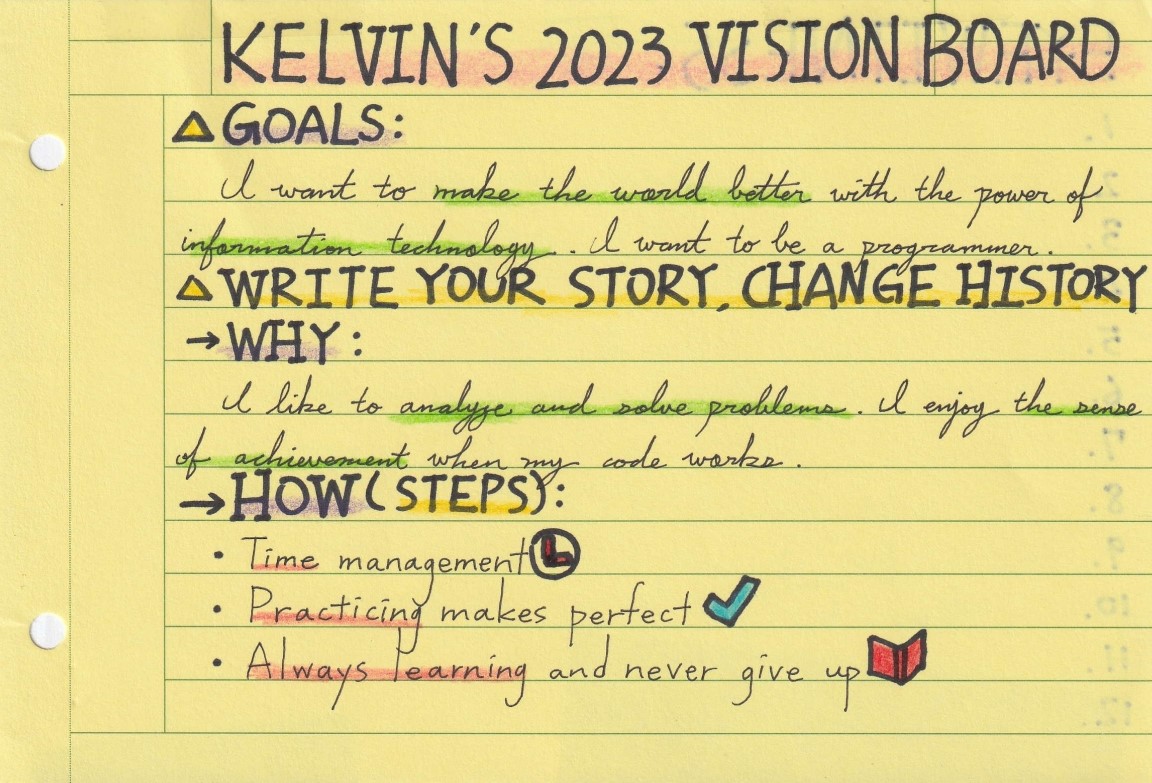 KELVIN'S 2023 VISION BOARD
GOALS:
I want to make the world better with the power of
information technology. I want to be a programmer.
WRITE YOUR STORY, CHANGE HISTORY
→ WHY:
I like to analyze and solve problems. I enjoy the sense
of achievement when my code works.
→ HOW (STEPS):
• Time management
• Practicing makes perfect
• Always learning and never give up